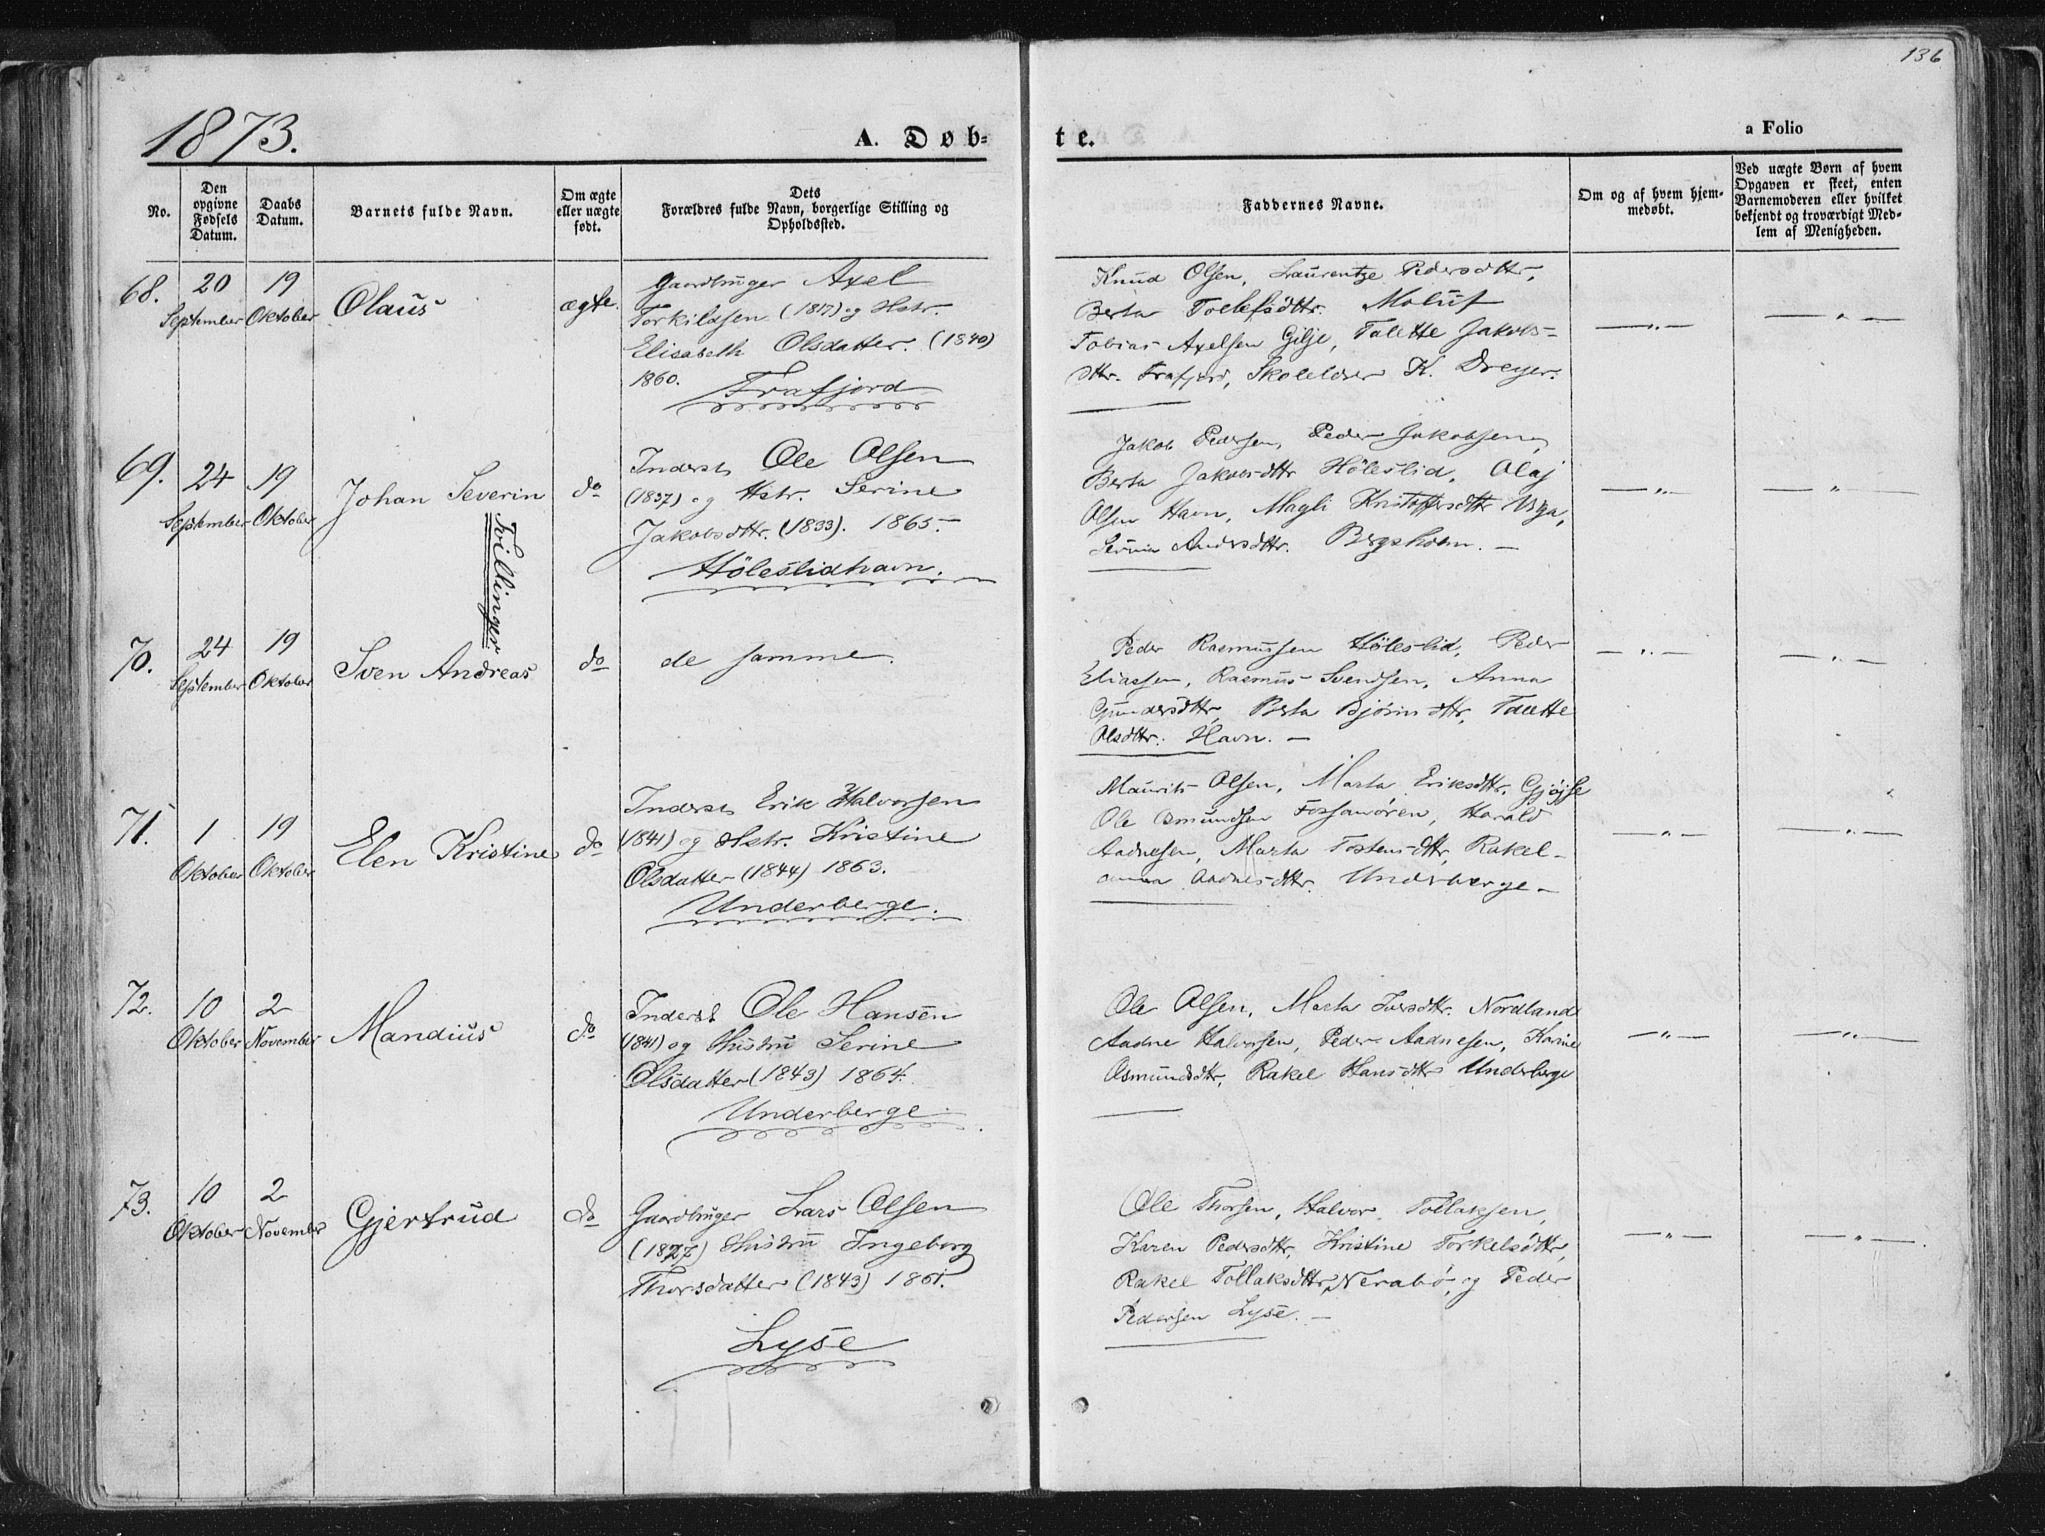 136
1873.
A. Døb-
te.
a Folio
No.
Den opgivne Fødsels Datum.
Daabs Datum.
Barnets fulde Navn.
Om ægte eller uægte født.
Dets Forældres fulde Navn, borgerlige Stilling og Opholdssted.
Faddernes Navne.
Om og af hvem hjemmedøbt.
Ved uægte Børn af hvem Opgaven er skeet, enten Barnemoderen eller hvilket bekjendt og troværdigt Medlem af Menigheden.
68.
20 September
19 Oktober
Olaus
ægte.
Gaardbruger Axel
Torkildsen (1817) og Hstr.
Elisabeth Olsdatter. (1840)
1860.
Frafjord
Knud Olsen, Laurentze Pedersdttr,
Berta Tollefsdttr. Molüf
Tobias Axelsen Gilje, Talette Jakobs-
dttr. Frafjord, K. Dreyer.
— " —
— " —
69.
24 September
19 Oktober
Johan Severin
do
Inderst Ole Olsen
(1837) og Hstr. Serine
Jakobsdttr. (1833). 1865.
Höleslidhavn.
Jakob Pedersen, Peder Jakobsen,
Berta Jakobsdttr Höleslid, Olaj
Olsen Havn, Magli Kristoffersdttr
Andersdttr. Bergsholm. —
— " —
— " —
Tvillinger
70.
24 September
19 Oktober
Sven Andreas
do
de samme.
Peder Rasmussen Höleslid, Peder
Eliassen, Rasmus Svendsen, Anna
Gundersdttr, Berta Bjørnsdttr, Talette
Olsdttr. Havn. —
— " —
— " —
71.
1 Oktober
19 Oktober
Elen Kristine
do
Inderst Erik Halvorsen
(1841) og Hstr. Kristine
Olsdatter (1844) 1863.
Underberge.
Maurits Olsen, Marta Eriksdttr.
Ole Osmundsen Fossanøren, Harald
Aadnesen, Marta Tostensdttr, Rakel
Aadnesdttr. Underberge —
— " —
— " —
72.
10 Oktober
2 November
Mandius
do
Inderst Ole Hansen
(1841) og Hustru Serine
Olsdatter (1843) 1864.
Underberge.
Ole Olsen, Marta Iversdttr. Nordland
Aadne Halvorsen, Peder Aadnesen, Karine
Osmundsdttr, Rakel Hansdttr Underberge
— " —
— " —
73.
10 Oktober
2 November
Gjertrud
do
Gaardbruger Lars Olsen
(1827) Hustru Ingeborg
Thorsdatter (1843) 1861.
Lyse
Ole Thorsen, Halvor Tollaksen,
Karen Pedersdttr, Kristine Torkelsdttr,
Rakel Tollaksdttr, Nerabö, og Peder
Pedersen Lyse. —
— " —
— " —